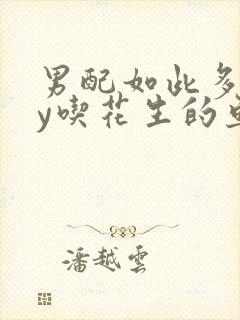 男配如此多
y喫花生的
潘越雲